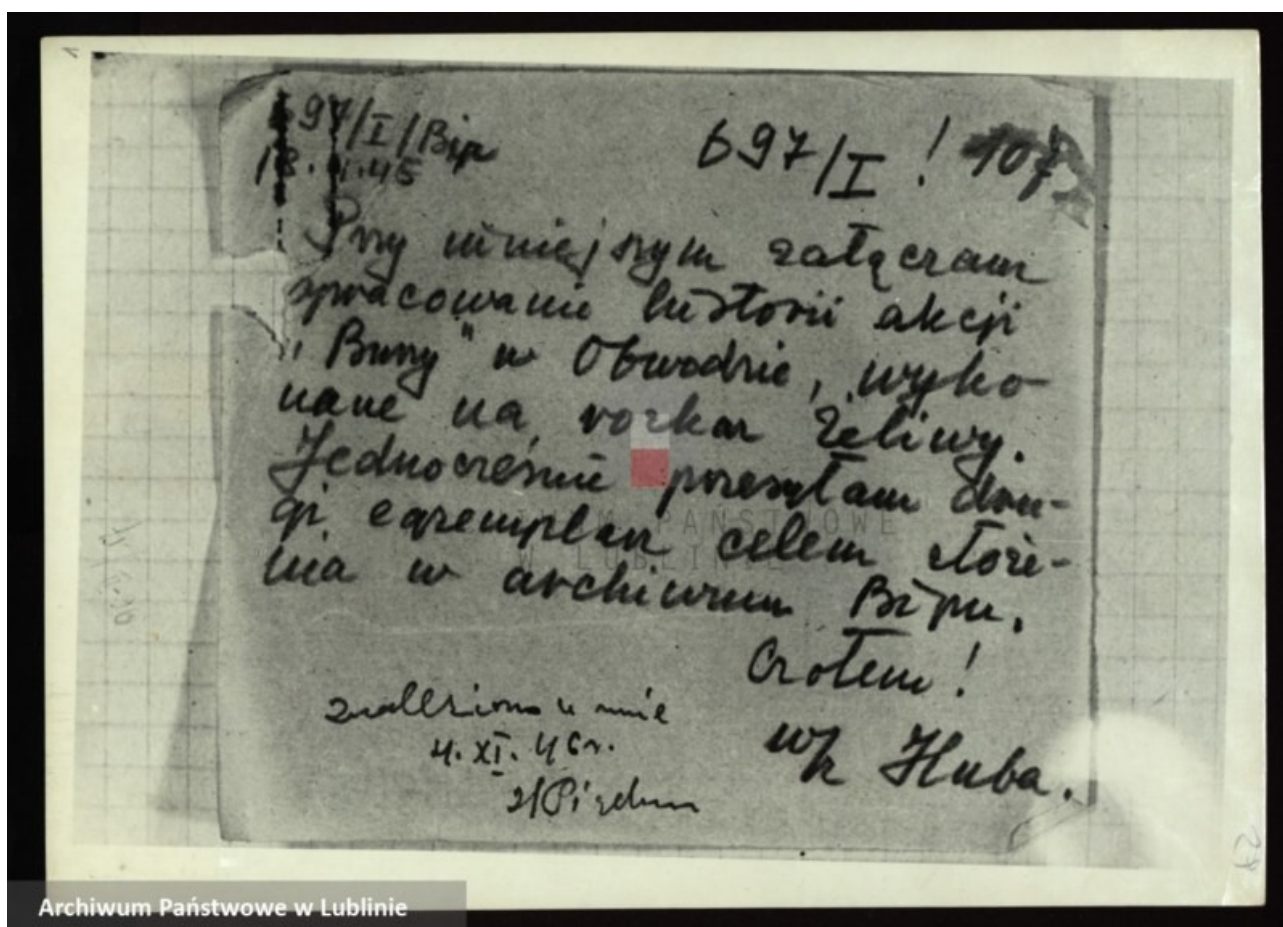 697/I/Bip
697/I ! 107
18. 45
Przy niniejszym załączam
opracowanie historii akcji
„Burzy" w Obwodzie, wyko-
nane na rozkaz Żeliwy.
Jednocześnie przesyłam dru-
gi egzemplarz celem złoże-
nia w archiwum Bipu.
Czołem!
wz Huba.
znaleziono u mnie
4. XI. 46 r.
ARCHIWUM PAŃSTWOWE
W LUBLINIE
Archiwum Państwowe w Lublinie